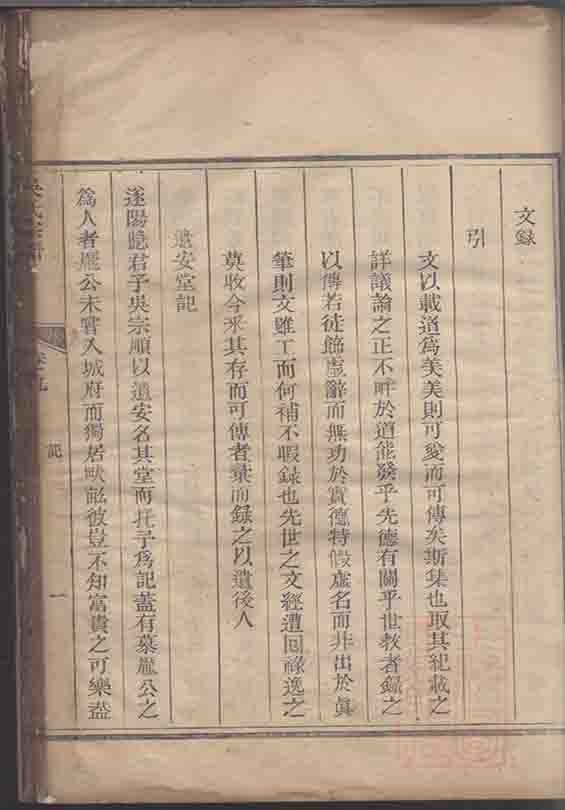 文録
引
文以載道爲美美則可愛而可傳矣斯集也取其紀載之
詳議論之正不畔於道能發乎先德有關乎世教者録之
以傳若徒飾虛辭而無功於實德特假虛名而非出於眞
筆則文雖工而何補不暇録也先世之文經遭囘祿逸之
莫收今釆其存而可傳者彚而録之以遺後人
遺安堂記
遂陽隐君子吳宗順以遺安名其堂而托予爲記蓋有慕龐公之
爲人者龐公未嘗入城府而獨居畎畝彼豈不知富貴之可樂盖
卷之九
記
一